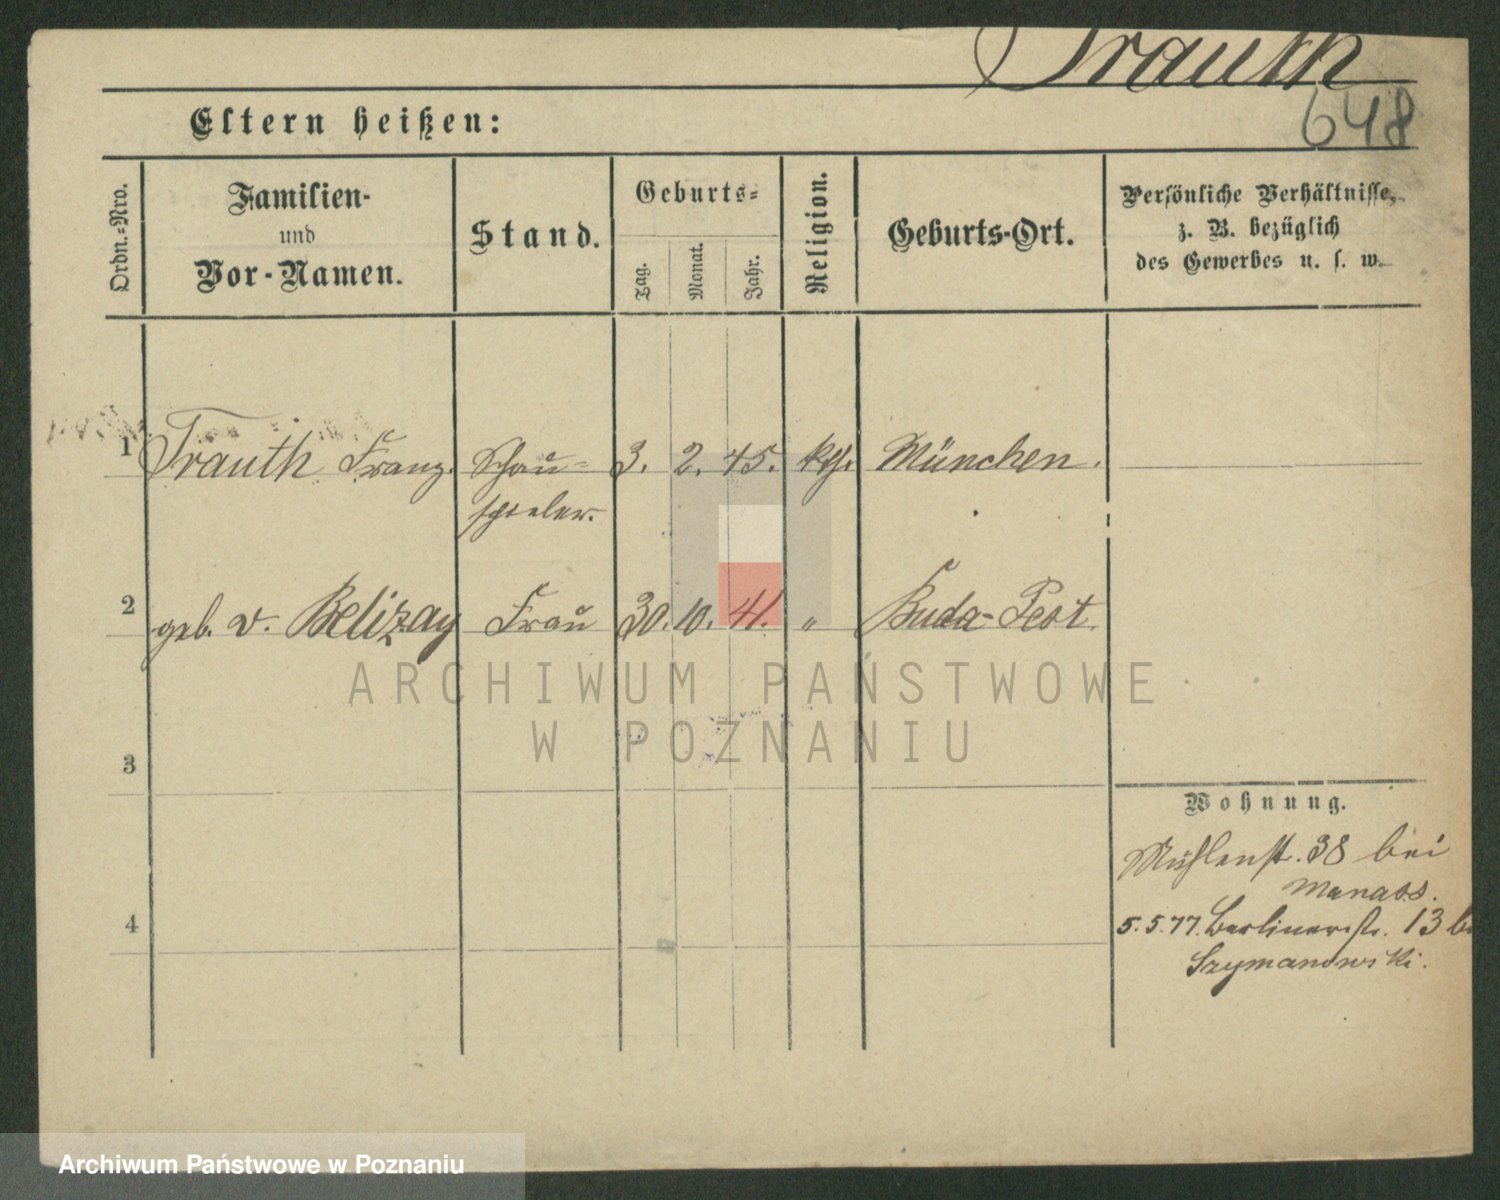 Trauth
648
Eltern heißen:
Ordn.-Nro.
Familien-
und
Vor-Namen.
Stand.
Geburts-
Tag.
Monat.
Jahr.
Religion.
Geburts-Ort.
Persönliche Verhältnisse,
z. B. bezüglich
des Gewerbes u. s. w.
1 Trauth Franz. Schau- 3. 2. 45. kth. München.
spieler.
2 geb. v. Belizay Frau 30. 10. 41. " Buda-Pest.
ARCHIWUM PAŃSTWOWE
W POZNANIU
3
Wohnung.
Mühlenst. 38 bei
Manass.
4
5.5.77. Berlinerstr. 13 b
Szymanowski.
Archiwum Państwowe w Poznaniu